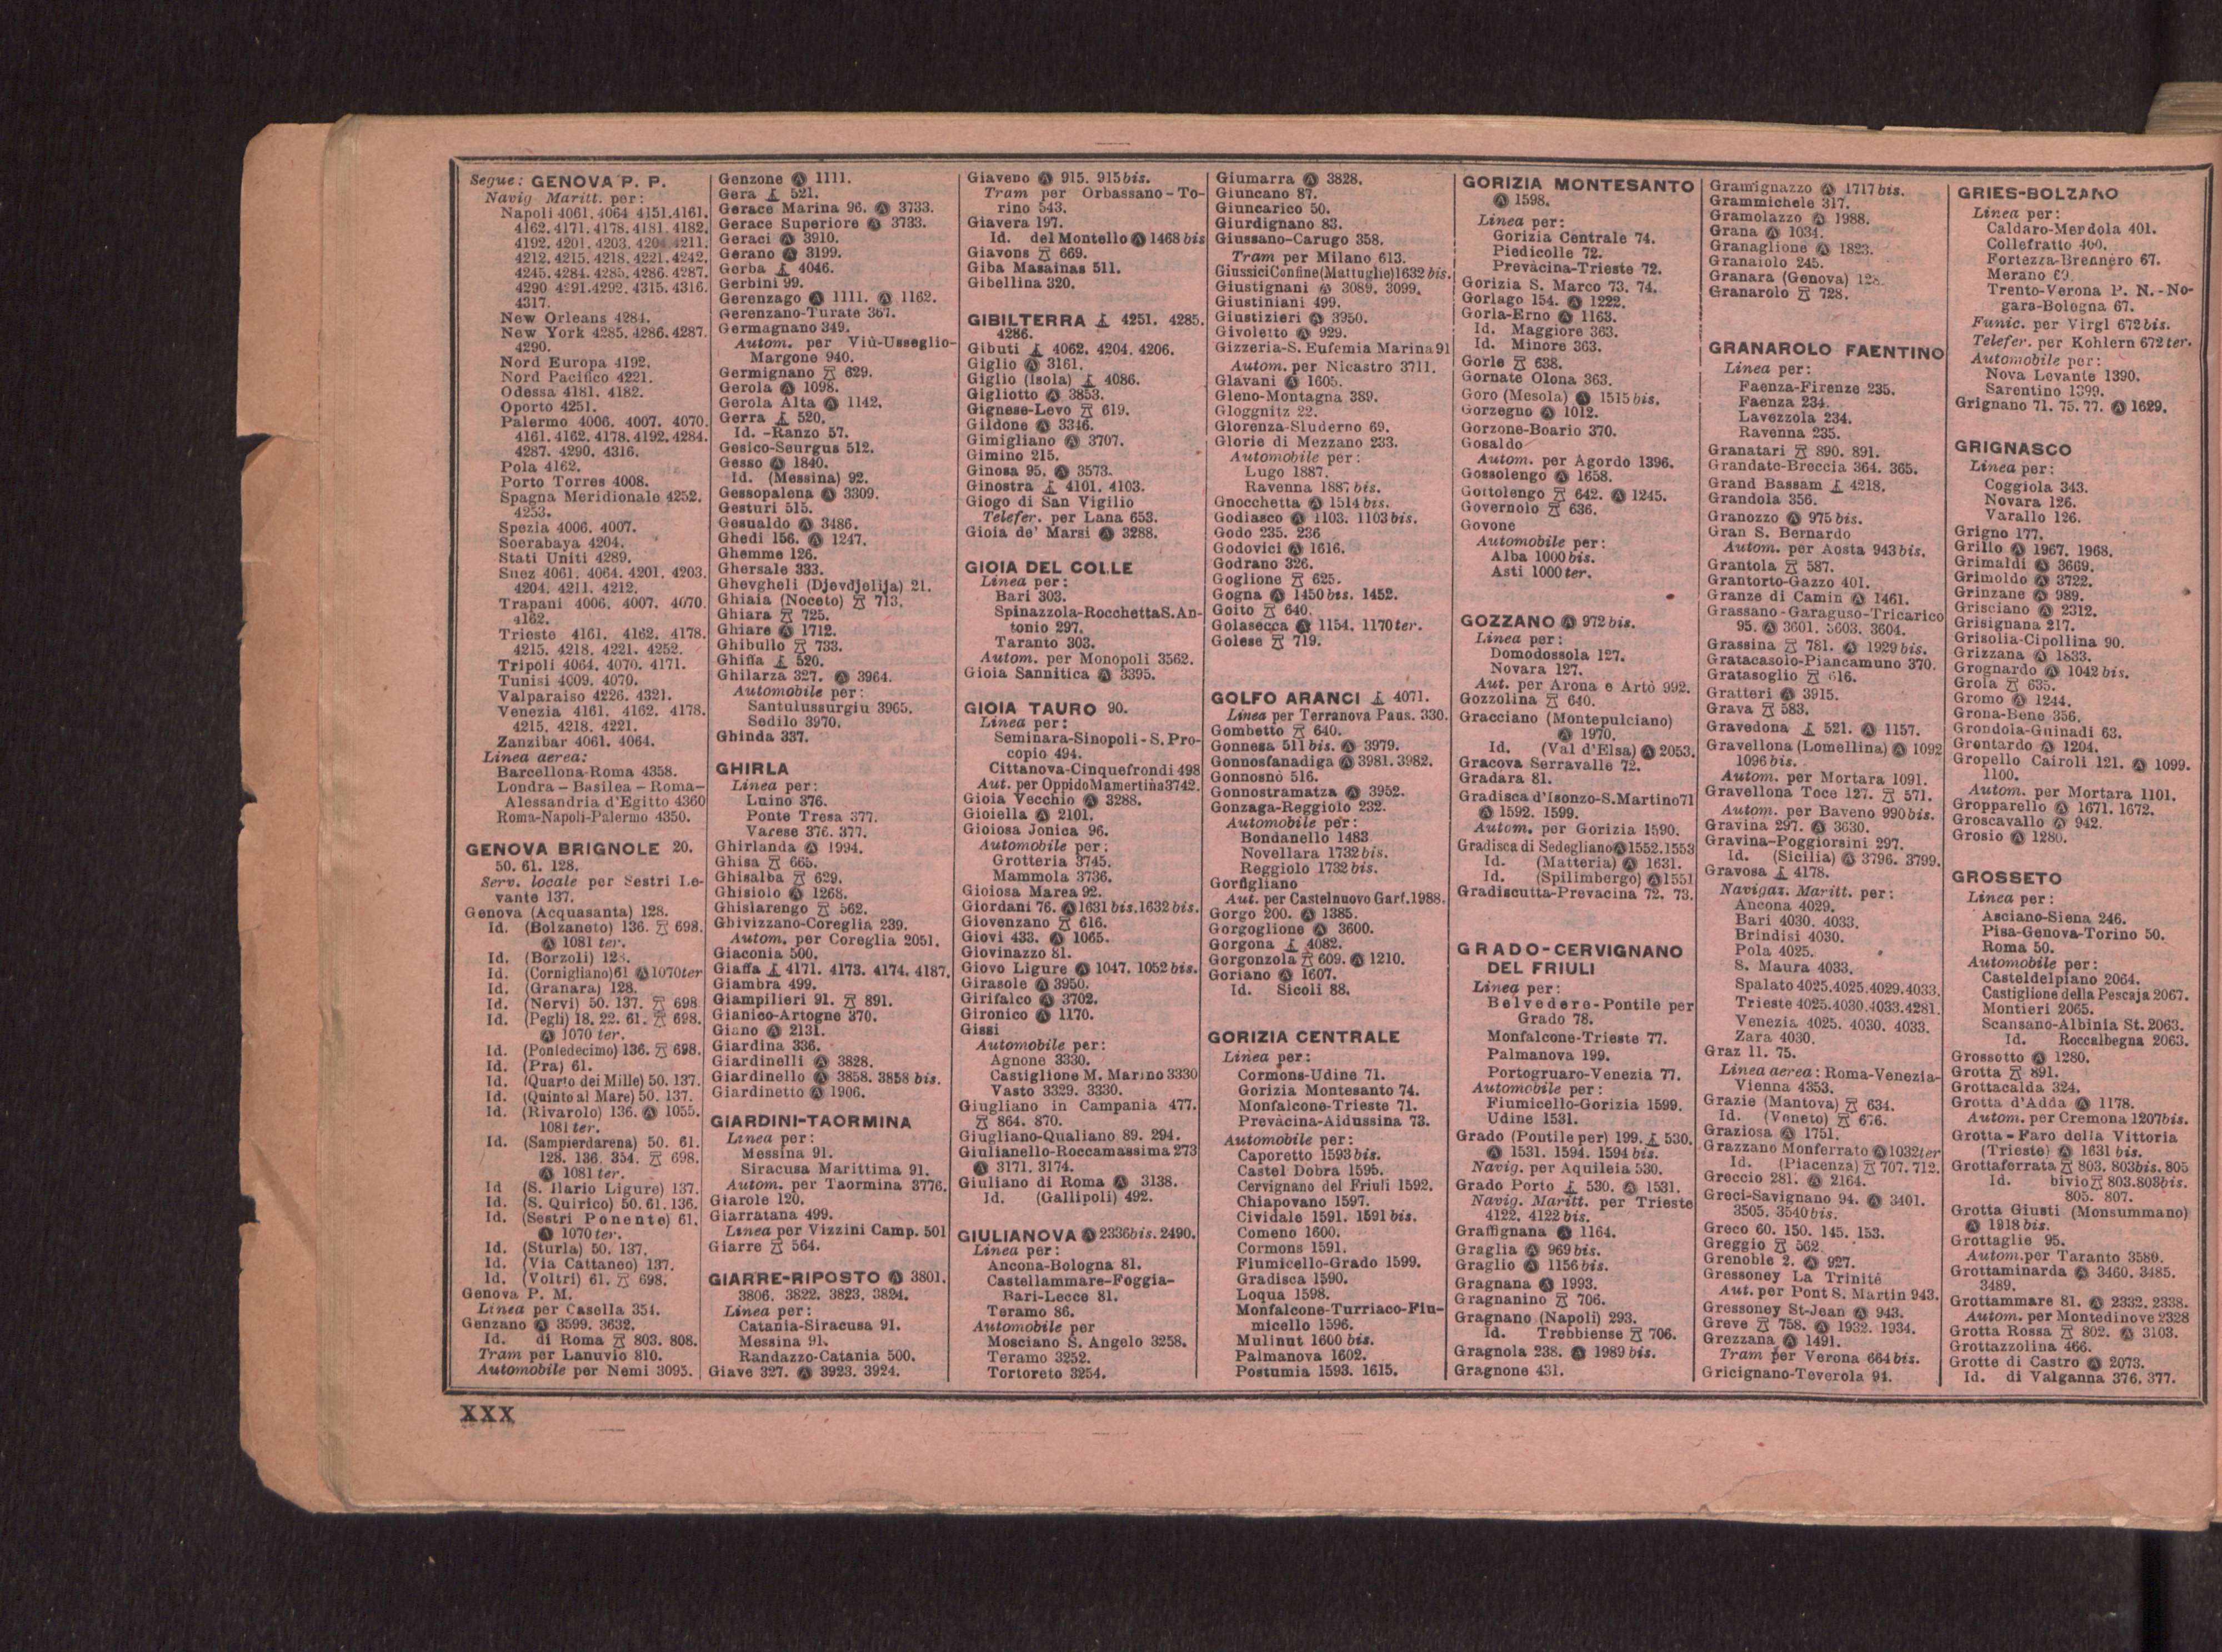 Segue: GENOVA P. P.
Navig Maritt. per:
Napoli 4061. 4064 4151.4161.
4162. 4171. 4178. 4181. 4182.
4192. 4201. 4203. 4204 4211.
4212. 4215. 4218. 4221. 4242.
4245. 4284. 4285. 4286. 4287.
4290 4291.4292. 4315. 4316.
4317.
New Orleans 4284.
New York 4285. 4286. 4287.
4290.
Nord Europa 4192.
Nord Pacifico 4221.
Odessa 4181. 4182.
Oporto 4251.
Palermo 4006. 4007. 4070.
4161. 4162. 4178. 4192. 4284.
4287. 4290. 4316.
Pola 4162.
Porto Torres 4008.
Spagna Meridionale 4252.
4253.
Spezia 4006. 4007.
Soerabaya 4204.
Stati Uniti 4289.
Suez 4061. 4064. 4201. 4203.
4204. 4211. 4212.
Trapani 4006. 4007. 4070.
4162.
Trieste 4161. 4162. 4178.
4215. 4218. 4221. 4252.
Tripoli 4064. 4070. 4171.
Tunisi 4009. 4070.
Valparaiso 4226. 4321.
Venezia 4161. 4162. 4178.
4215. 4218. 4221.
Zanzibar 4061. 4064.
Linea aerea:
Barcellona-Roma 4358.
Londra - Basilea - Roma-
Alessandria d'Egitto 4360
Roma-Napoli-Palermo 4350.
GENOVA BRIGNOLE 20.
50. 61. 128.
Serv. locale per Sestri Le-
vante 137.
Genova (Acquasanta) 128.
Id. (Bolzaneto) 136. 698.
Ⓐ 1081 ter.
Id. (Borzoli) 128.
Id. (Cornigliano) 61 Ⓐ 1070ter
Id. (Granara) 128.
Id. (Nervi) 50. 137. 698
Id. (Pegli) 18. 22. 61. 698.
Ⓐ 1070 ter.
Id. (Pontedecimo) 136. 698.
Id. (Pra) 61.
Id. (Quarto dei Mille) 50. 137.
Id. (Quinto al Mare) 50. 137.
Id. (Rivarolo) 136. Ⓐ 1055.
1081 ter.
Id. (Sampierdarena) 50. 61.
128. 136. 354. 698.
Ⓐ 1081 ter.
Id (S. Ilario Ligure) 137.
Id. (S. Quirico) 50. 61. 136.
Id. (Sestri Ponente) 61.
Ⓐ 1070 ter.
Id. (Sturla) 50. 137.
Id. (Via Cattaneo) 137.
Id. (Voltri) 61. 698.
Genova P. M.
Linea per Casella 354.
Genzano Ⓐ 3599. 3632.
Id. di Roma 803. 808.
Tram per Lanuvio 810.
Automobile per Nemi 3095.
Genzone Ⓐ 1111.
Gera 521.
Gerace Marina 96. Ⓐ 3733.
Gerace Superiore Ⓐ 3733.
Geraci Ⓐ 3910.
Gerano Ⓐ 3199.
Gerba 4046.
Gerbini 99.
Gerenzago Ⓐ 1111. Ⓐ 1162.
Gerenzano-Turate 367.
Germagnano 349.
Autom. per Viù-Usseglio-
Margone 940.
Germignano 629.
Gerola Ⓐ 1098.
Gerola Alta Ⓐ 1142.
Gerra 520.
Id. -Ranzo 57.
Gesico-Seurgus 512.
Gesso Ⓐ 1840.
Id. (Messina) 92.
Gessopalena Ⓐ 3309.
Gesturi 515.
Gesualdo Ⓐ 3486.
Ghedi 156. Ⓐ 1247.
Ghemme 126.
Ghersale 333.
Ghevgheli (Djevdjelija) 21.
Ghiaia (Noceto) 713.
Ghiara 725.
Ghiare Ⓐ 1712.
Ghibullo 733.
Ghiffa 520.
Ghilarza 327. Ⓐ 3964.
Automobile per:
Santulussurgiu 3965.
Sedilo 3970.
Ghinda 337.
GHIRLA
Linea per:
Luino 376.
Ponte Tresa 377.
Varese 376. 377.
Ghirlanda Ⓐ 1994.
Ghisa 665.
Ghisalba 629.
Ghisiolo Ⓐ 1268.
Ghislarengo 562.
Ghivizzano-Coreglia 239.
Autom. per Coreglia 2051.
Giaconia 500.
Giaffa 4171. 4173. 4174. 4187.
Giambra 499.
Giampilieri 91. 891.
Gianico-Artogne 370.
Giano Ⓐ 2131.
Giardina 336.
Giardinelli Ⓐ 3828.
Giardinello Ⓐ 3858. 3858 bis.
Giardinetto Ⓐ 1906.
GIARDINI-TAORMINA
Linea per:
Messina 91.
Siracusa Marittima 91.
Autom. per Taormina 3776.
Giarole 120.
Giarratana 499.
Linea per Vizzini Camp. 501
Giarre 564.
GIARRE-RIPOSTO Ⓐ 3801.
3806. 3822. 3823. 3824.
Linea per:
Catania-Siracusa 91.
Messina 91.
Randazzo-Catania 500.
Giave 327. Ⓐ 3923. 3924.
Giaveno Ⓐ 915. 915bis.
Tram per Orbassano-To-
rino 543.
Giavera 197.
Id. del Montello Ⓐ 1468 bis
Giavons 669.
Giba Masainas 511.
Gibellina 320.
GIBILTERRA 4251. 4285.
4286.
Gibuti 4062. 4204. 4206.
Giglio Ⓐ 3161.
Giglio (Isola) 4086.
Gigliotto Ⓐ 3853.
Gignese-Levo 619.
Gildone Ⓐ 3346.
Gimigliano Ⓐ 3707.
Gimino 215.
Ginosa 95. Ⓐ 3573.
Ginostra 4101. 4103.
Giogo di San Vigilio
Telefer. per Lana 653.
Gioia de' Marsi Ⓐ 3288.
GIOIA DEL COLLE
Linea per:
Bari 303.
Spinazzola-RocchettaS.An-
tonio 297.
Taranto 303.
Autom. per Monopoli 3562.
Gioia Sannitica Ⓐ 3395.
GIOIA TAURO 90.
Linea per:
Seminara-Sinopoli-S. Pro-
copio 494.
Cittanova-Cinquefrondi 498
Aut. per OppidoMamertina3742.
Gioia Vecchio Ⓐ 3288.
Gioiella Ⓐ 2101.
Gioiosa Jonica 96.
Automobile per:
Grotteria 3745.
Mammola 3736.
Gioiosa Marea 92.
Giordani 76. Ⓐ 1631 bis.1632 bis.
Giovenzano 616.
Giovi 433. Ⓐ 1065.
Giovinazzo 81.
Giovo Ligure Ⓐ 1047. 1052 bis.
Girasole Ⓐ 3950.
Girifalco Ⓐ 3702.
Gironico Ⓐ 1170.
Gissi
Automobile per:
Agnone 3330.
Castiglione M. Marino 3330
Vasto 3329. 3330.
Giugliano in Campania 477.
864. 870.
Giugliano-Qualiano 89. 294.
Giulianello-Roccamassima 273
Ⓐ 3171. 3174.
Giuliano di Roma Ⓐ 3138.
Id. (Gallipoli) 492.
GIULIANOVA Ⓐ 2336bis. 2490.
Linea per:
Ancona-Bologna 81.
Castellammare-Foggia-
Bari-Lecce 81.
Teramo 86.
Automobile per
Mosciano S. Angelo 3258.
Teramo 3252.
Tortoreto 3254.
Giumarra Ⓐ 3828.
Giuncano 87.
Giuncarico 50.
Giurdignano 83.
Giussano-Carugo 358.
Tram per Milano 613.
GiussiciConfine(Mattuglie)1632 bis.
Giustignani Ⓐ 3089. 3099.
Giustiniani 499.
Giustizieri Ⓐ 3950.
Givoletto Ⓐ 929.
Gizzeria-S. Eufemia Marina 91
Autom. per Nicastro 3711.
Glavani Ⓐ 1605.
Gleno-Montagna 389.
Gloggnitz 22.
Glorenza-Sluderno 69.
Glorie di Mezzano 233.
Automobile per:
Lugo 1887.
Ravenna 1887 bis.
Gnocchetta Ⓐ 1514 bis.
Godiasco Ⓐ 1103. 1103 bis.
Godo 235. 236
Godovici Ⓐ 1616.
Godrano 326.
Goglione 625.
Gogna Ⓐ 1450 bis. 1452.
Goito 640.
Golasecca Ⓐ 1154. 1170 ter.
Golese 719.
GOLFO ARANCI 4071.
Linea per Terranova Paus. 330.
Gombetto 640.
Gonnesa 511 bis. Ⓐ 3979.
Gonnosfanadiga Ⓐ 3981. 3982.
Gonnosnò 516.
Gonnostramatza Ⓐ 3952.
Gonzaga-Reggiolo 232.
Automobile per:
Bondanello 1483
Novellara 1732 bis.
Reggiolo 1732 bis.
Gorfigliano
Aut. per Castelnuovo Garf.1988.
Gorgo 200. Ⓐ 1385.
Gorgoglione Ⓐ 3600.
Gorgona 4082.
Gorgonzola 609. Ⓐ 1210.
Goriano Ⓐ 1607.
Id. Sicoli 88.
GORIZIA CENTRALE
Linea per:
Cormons-Udine 71.
Gorizia Montesanto 74.
Monfalcone-Trieste 71.
Prevàcina-Aidussina 73.
Automobile per:
Caporetto 1593 bis.
Castel Dobra 1595.
Cervignano del Friuli 1592.
Chiapovano 1597.
Cividale 1591. 1591 bis.
Comeno 1600.
Cormons 1591.
Fiumicello-Grado 1599.
Gradisca 1590.
Loqua 1598.
Monfalcone-Turriaco-Fiu-
micello 1596.
Mulinut 1600 bis.
Palmanova 1602.
Postumia 1593. 1615.
GORIZIA MONTESANTO
Ⓐ 1598.
Linea per:
Gorizia Centrale 74.
Piedicolle 72.
Prevàcina-Trieste 72.
Gorizia S. Marco 73. 74.
Gorlago 154. Ⓐ 1222.
Gorla-Erno Ⓐ 1163.
Id. Maggiore 363.
Id. Minore 363.
Gorle 638.
Gornate Olona 363.
Goro (Mesola) Ⓐ 1515 bis.
Gorzegno Ⓐ 1012.
Gorzone-Boario 370.
Gosaldo
Autom. per Agordo 1396.
Gossolengo Ⓐ 1658.
Gottolengo 642. Ⓐ 1245.
Governolo 636.
Govone
Automobile per:
Alba 1000 bis.
Asti 1000 ter.
GOZZANO Ⓐ 972 bis.
Linea per:
Domodossola 127.
Novara 127.
Aut. per Arona e Artò 992.
Gozzolina 640.
Gracciano (Montepulciano)
Ⓐ 1970.
Id. (Val d'Elsa) Ⓐ 2053.
Gracova Serravalle 72.
Gradara 81.
Gradisca d'Isonzo-S.Martino 71
Ⓐ 1592. 1599.
Autom. per Gorizia 1590.
Gradisca di Sedegliano Ⓐ 1552.1553
Id. (Matteria) Ⓐ 1631.
Id. (Spilimbergo) Ⓐ 1551
Gradiscutta-Prevacina 72. 73.
GRADO-CERVIGNANO
DEL FRIULI
Linea per:
Belvedere-Pontile per
Grado 78.
Monfalcone-Trieste 77.
Palmanova 199.
Portogruaro-Venezia 77.
Automobile per:
Fiumicello-Gorizia 1599.
Udine 1531.
Grado (Pontile per) 199. 530.
Ⓐ 1531. 1594. 1594 bis.
Navig. per Aquileia 530.
Grado Porto 530. Ⓐ 1531.
Navig. Maritt. per Trieste
4122. 4122 bis.
Graffignana Ⓐ 1164.
Graglia Ⓐ 969 bis.
Graglio Ⓐ 1156 bis.
Gragnana Ⓐ 1993.
Gragnanino 706.
Gragnano (Napoli) 293.
Id. Trebbiense 706.
Gragnola 238. Ⓐ 1989 bis.
Gragnone 431.
Gramignazzo Ⓐ 1717 bis.
Grammichele 317.
Gramolazzo Ⓐ 1988.
Grana Ⓐ 1034.
Granaglione Ⓐ 1823.
Granaiolo 245.
Granara (Genova) 128.
Granarolo 728.
GRANAROLO FAENTINO
Linea per:
Faenza-Firenze 235.
Faenza 234.
Lavezzola 234.
Ravenna 235.
Granatari 890. 891.
Grandate-Breccia 364. 365.
Grand Bassam 4218.
Grandola 356.
Granozzo Ⓐ 975 bis.
Gran S. Bernardo
Autom. per Aosta 943 bis.
Grantola 587.
Grantorto-Gazzo 401.
Granze di Camin Ⓐ 1461.
Grassano-Garaguso-Tricarico
95. Ⓐ 3601. 3603. 3604.
Grassina 781. Ⓐ 1929 bis.
Gratacasolo-Piancamuno 370.
Gratasoglio 616.
Gratteri Ⓐ 3915.
Grava 583.
Gravedona 521. Ⓐ 1157.
Gravellona (Lomellina) Ⓐ 1092
1096 bis.
Autom. per Mortara 1091.
Gravellona Toce 127. 571.
Autom. per Baveno 990 bis.
Gravina 297. Ⓐ 3630.
Gravina-Poggiorsini 297.
Id. (Sicilia) Ⓐ 3796. 3799.
Gravosa 4178.
Navigaz. Maritt. per:
Ancona 4029.
Bari 4030. 4033.
Brindisi 4030.
Pola 4025.
S. Maura 4033.
Spalato 4025.4025.4029.4033.
Trieste 4025.4030.4033.4281.
Venezia 4025. 4030. 4033.
Zara 4030.
Graz 11. 75.
Linea aerea: Roma-Venezia-
Vienna 4353.
Grazie (Mantova) 634.
Id. (Veneto) 676.
Graziosa Ⓐ 1751.
Grazzano Monferrato Ⓐ 1032ter
Id. (Piacenza) 707. 712.
Greccio 281. Ⓐ 2164.
Greci-Savignano 94. Ⓐ 3401.
3505. 3540 bis.
Greco 60. 150. 145. 153.
Greggio 562.
Grenoble 2. Ⓐ 927.
Gressoney La Trinité
Aut. per Pont S. Martin 943.
Gressoney St-Jean Ⓐ 943.
Greve 758. Ⓐ 1932. 1934.
Grezzana Ⓐ 1491.
Tram per Verona 664 bis.
Gricignano-Teverola 91.
GRIES-BOLZANO
Linea per:
Caldaro-Merdola 401.
Collefratto 400.
Fortezza-Brennero 67.
Merano 69.
Trento-Verona P. N.-No-
gara-Bologna 67.
Funic. per Virgl 672 bis.
Telefer. per Kohlern 672 ter.
Automobile per:
Nova Levante 1390.
Sarentino 1399.
Grignano 71. 75. 77. Ⓐ 1629.
GRIGNASCO
Linea per:
Coggiola 343.
Novara 126.
Varallo 126.
Grigno 177.
Grillo Ⓐ 1967. 1968.
Grimaldi Ⓐ 3669.
Grimoldo Ⓐ 3722.
Grinzane Ⓐ 989.
Grisciano Ⓐ 2312.
Grisignana 217.
Grisolia-Cipollina 90.
Grizzana Ⓐ 1833.
Grognardo Ⓐ 1042 bis.
Grola 635.
Gromo Ⓐ 1244.
Grona-Bene 356.
Grondola-Guinadi 63.
Grontardo Ⓐ 1204.
Gropello Cairoli 121. Ⓐ 1099.
1100.
Autom. per Mortara 1101.
Gropparello Ⓐ 1671. 1672.
Groscavallo Ⓐ 942.
Grosio Ⓐ 1280.
GROSSETO
Linea per:
Asciano-Siena 246.
Pisa-Genova-Torino 50.
Roma 50.
Automobile per:
Casteldelpiano 2064.
Castiglione della Pescaja 2067.
Montieri 2065.
Scansano-Albinia St. 2063.
Id. Roccalbegna 2063.
Grossotto Ⓐ 1280.
Grotta 891.
Grottacalda 324.
Grotta d'Adda Ⓐ 1178.
Autom. per Cremona 1207bis.
Grotta-Faro della Vittoria
(Trieste) Ⓐ 1631 bis.
Grottaferrata 803. 803bis. 805
Id. bivio 803.803bis.
805. 807.
Grotta Giusti (Monsummano)
Ⓐ 1918 bis.
Grottaglie 95.
Autom.per Taranto 3580.
Grottaminarda Ⓐ 3460. 3485.
3489.
Grottammare 81. Ⓐ 2332. 2338.
Autom. per Montedinove 2328
Grotta Rossa 802. Ⓐ 3103.
Grottazzolina 466.
Grotte di Castro Ⓐ 2073.
Id. di Valganna 376. 377.
XXX